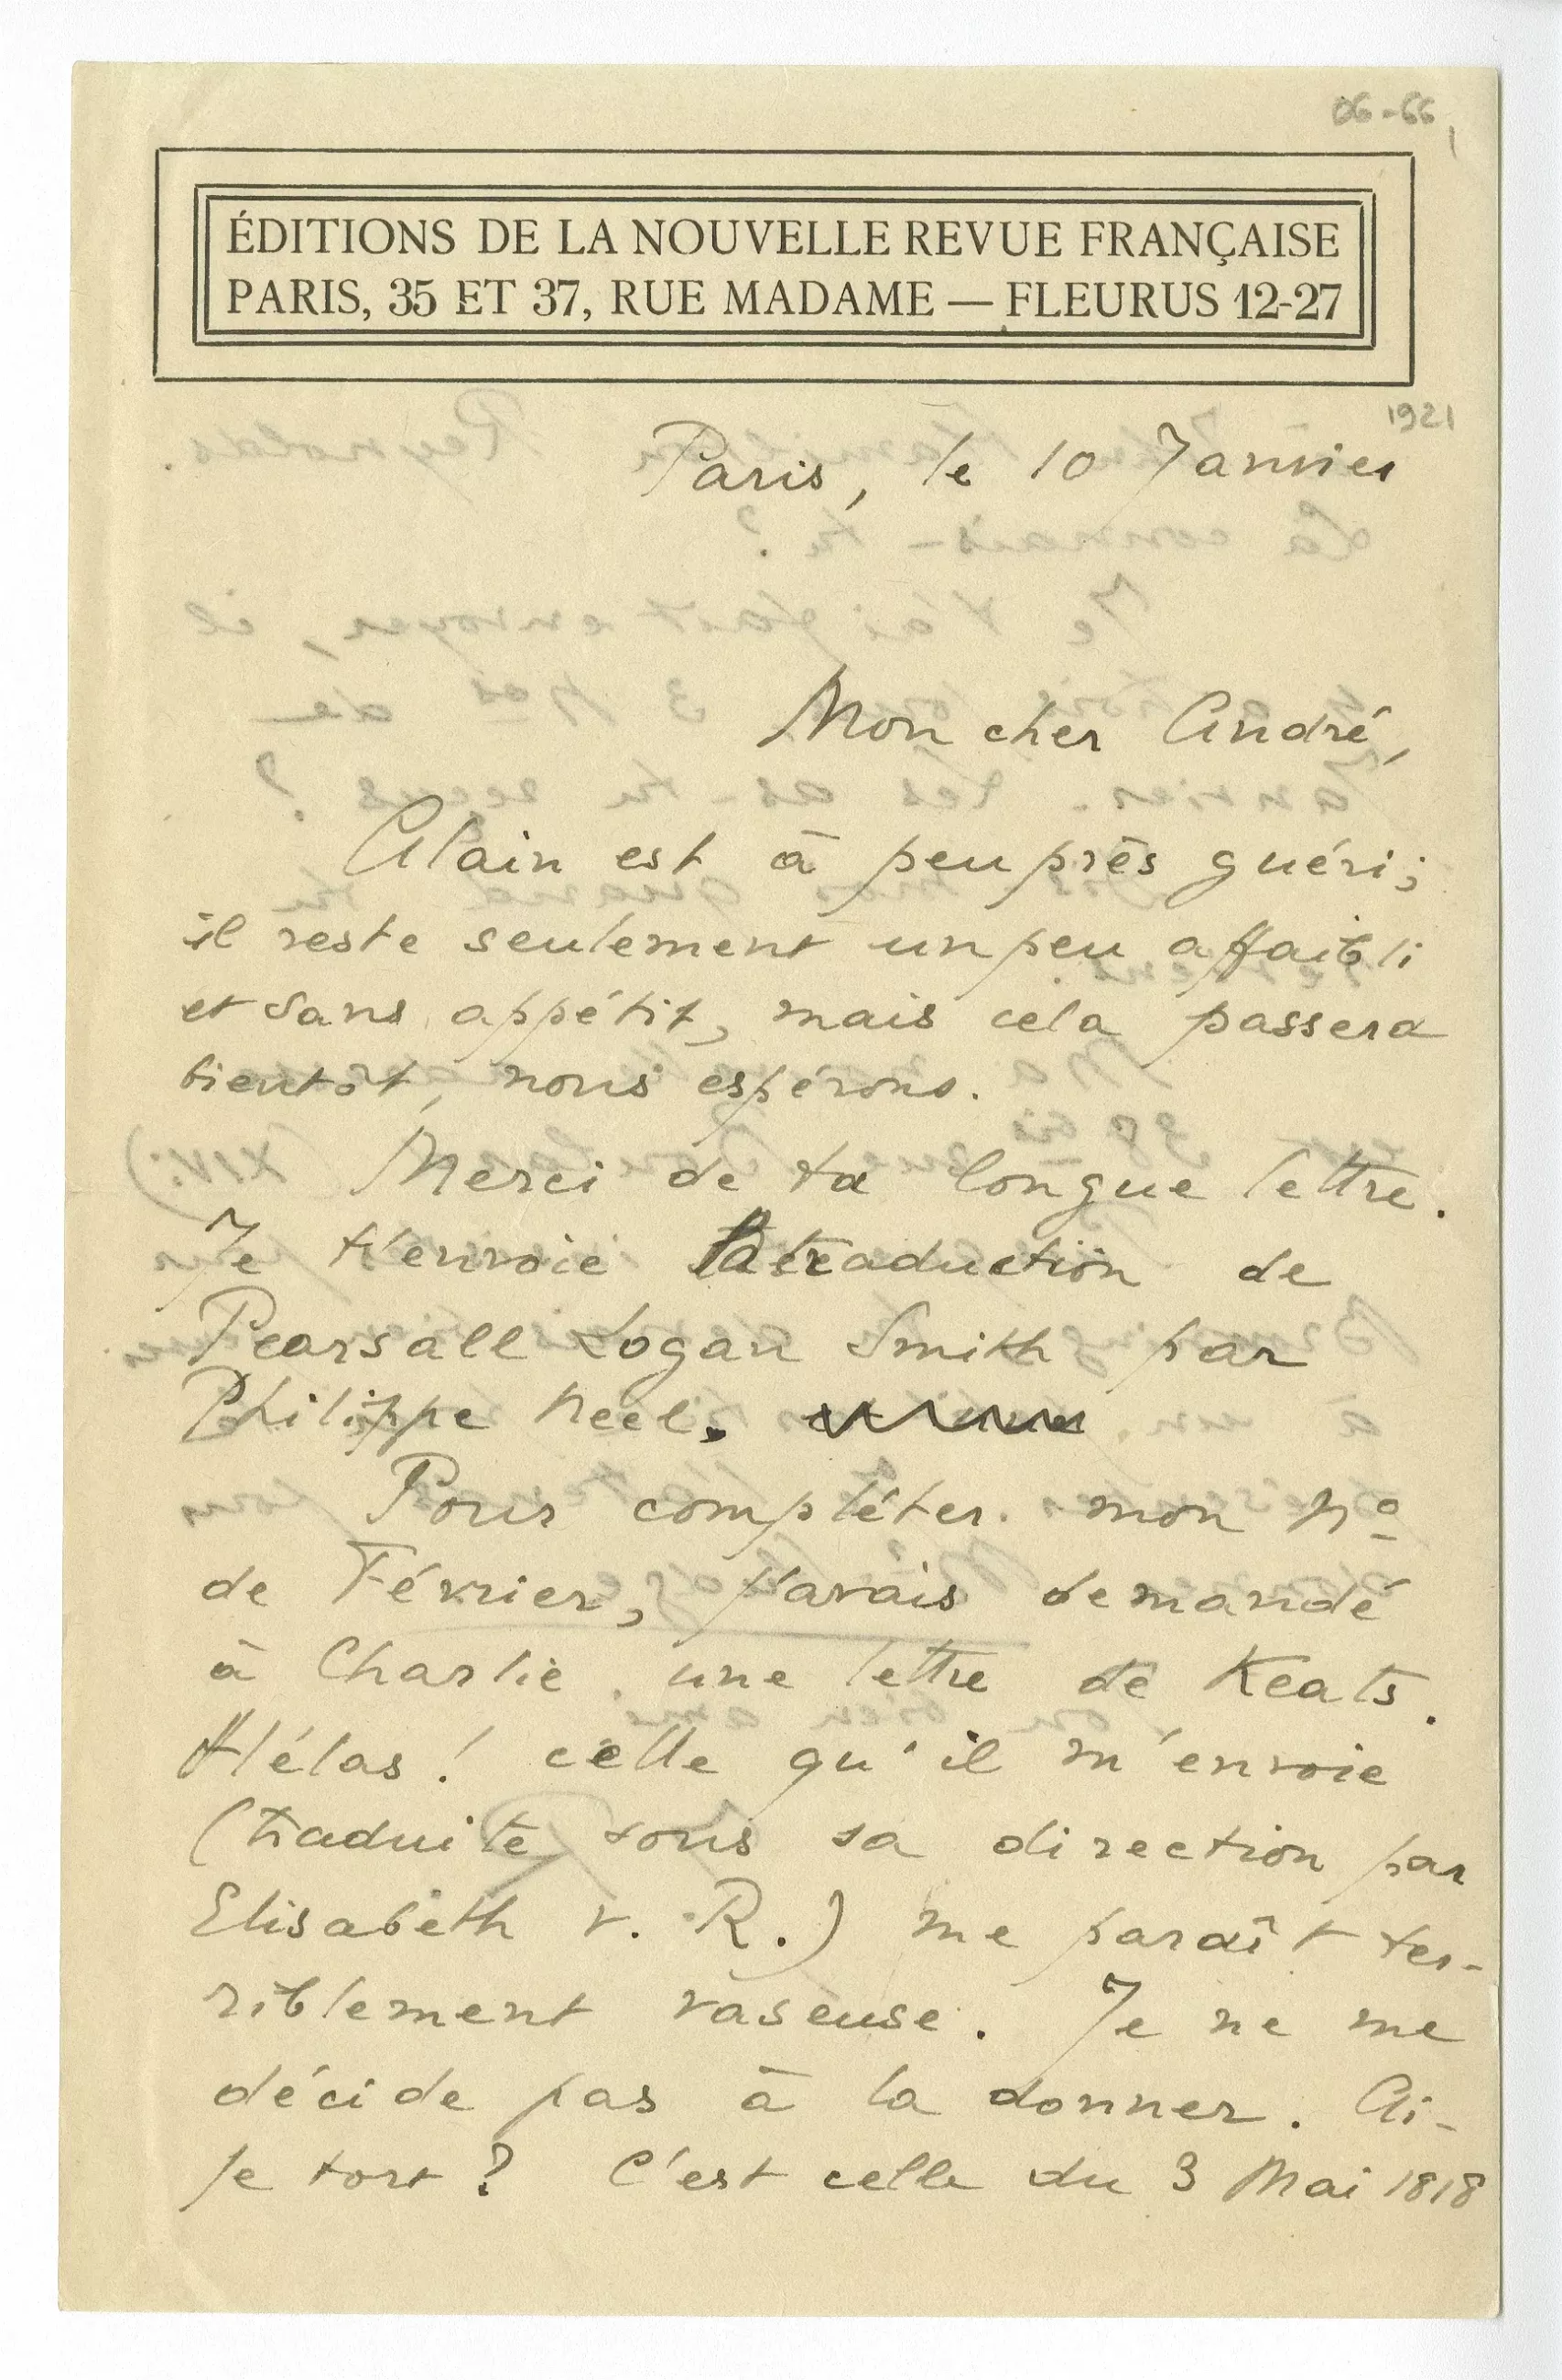 06-66,
ÉDITIONS DE LA NOUVELLE REVUE FRANÇAISE
PARIS, 35 ET 37, RUE MADAME — FLEURUS 12-27
1921
Paris, le 10 Janvier
Mon cher André,
Alain est à peu près guéri;
il reste seulement un peu affaibli
et sans appétit, mais cela passera
bientôt, nous espérons.
Merci de ta longue lettre.
Je t'envoie la traduction de
Pearsall Logan Smith par
Philippe Neel.
Pour compléter mon No
de Février, j'avais demandé
à Charlie une lettre de Keats.
Hélas ! celle qu'il m'envoie
(traduite sous sa direction par
Elisabeth v. R.) me paraît ter-
riblement vaseuse. Je ne me
décide pas à la donner. Ai-
je tort ? C'est celle du 3 Mai 1818